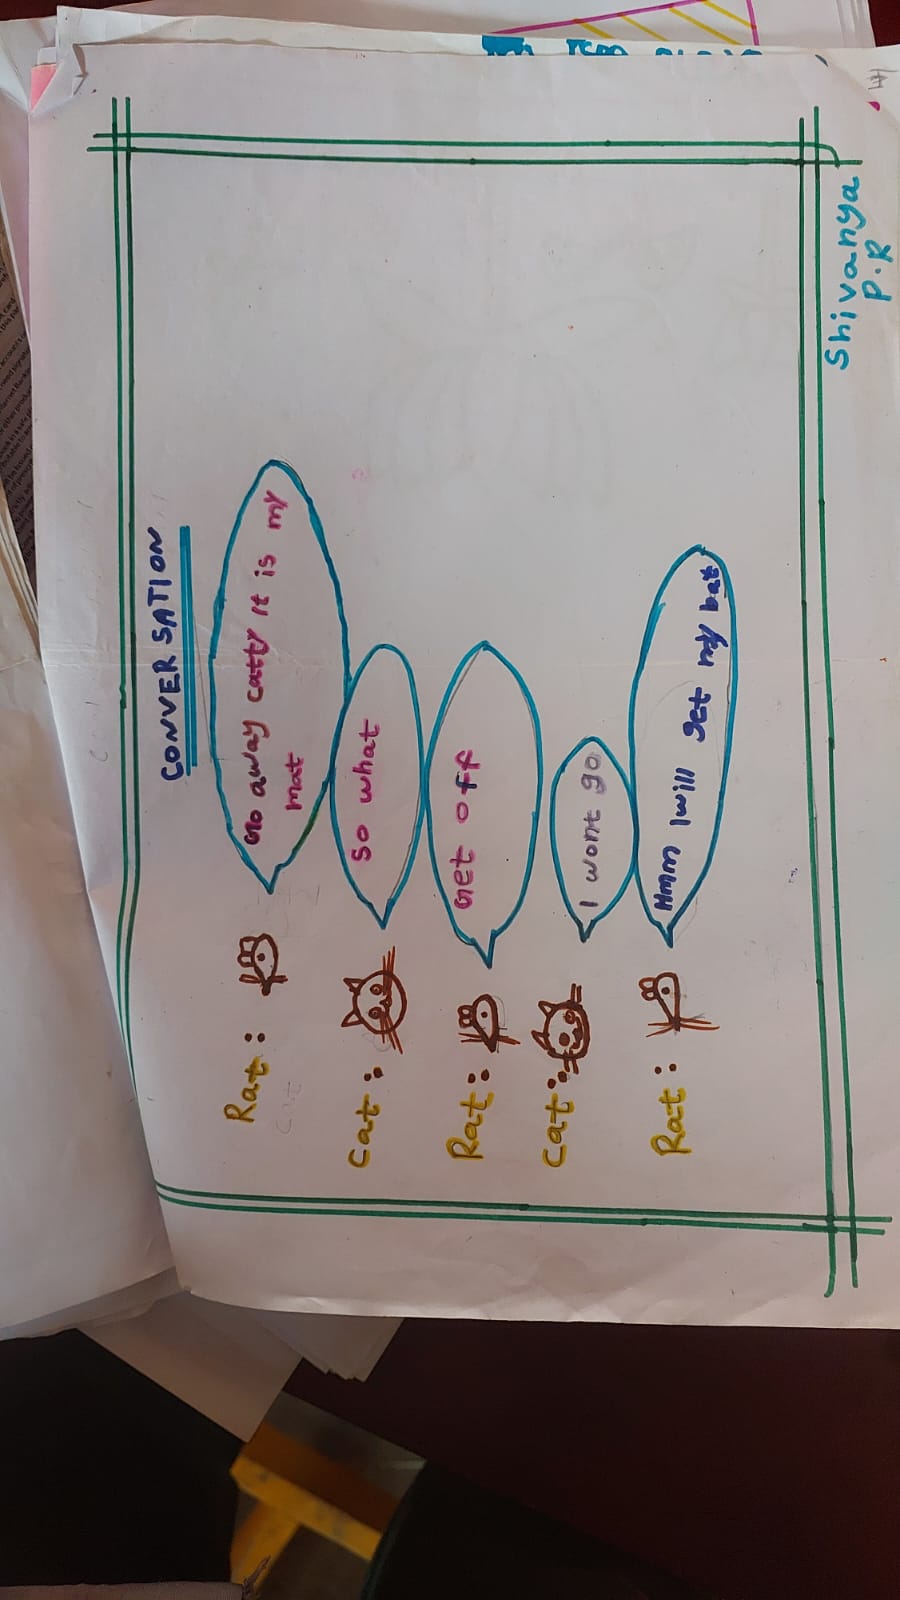 CONVERSATION
Rat:
Go away catty it is my
mat
cat:
So what
Rat:
Get off
cat:
I wont go
Rat:
Hmm I will get my bat
Shivanya
P.R